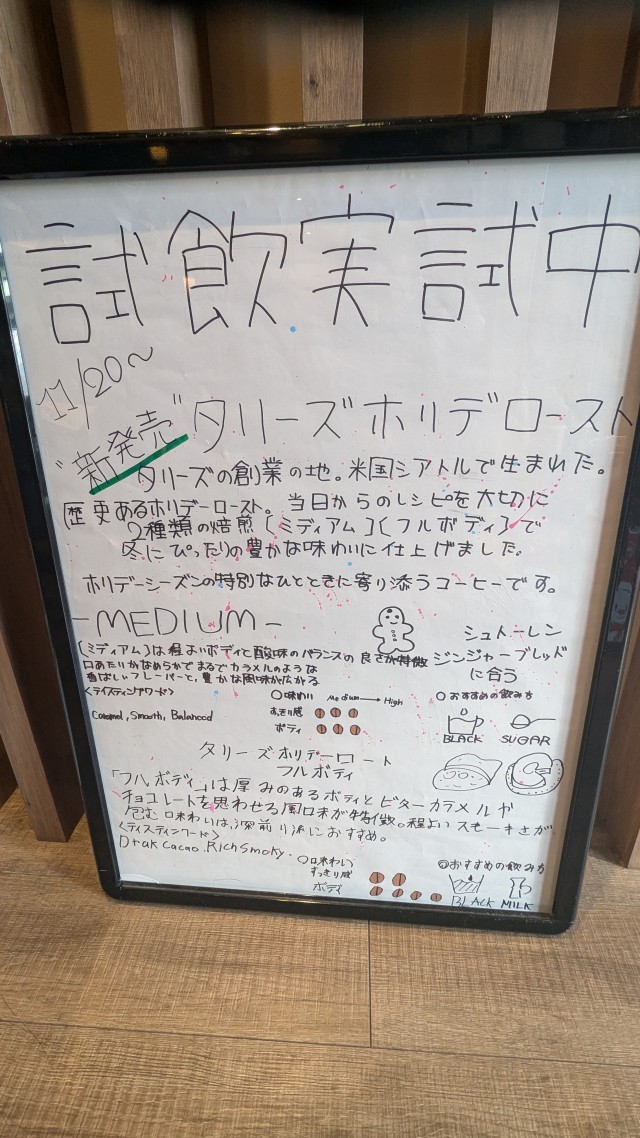 試飲実試中
11/20〜
"新発売" タリーズホリデーロースト
タリーズの創業の地。米国シアトルで生まれた。
歴史あるホリデーロースト。当日からのレシピを大切に
2種類の焙煎〔ミディアム〕〔フルボディ〕で
冬にぴったりの豊かな味わいに仕上げました。
ホリデーシーズンの特別なひとときに寄り添うコーヒーです。
-MEDIUM-
〔ミディアム〕は程よいボディと酸味のバランスの良さが特徴
口あたりがなめらかでまるでカラメルのような
香ばしいフレーバーと、豊かな風味が広がる
シュトーレン
ジンジャーブレッド
に合う
<テイスティングワード>
Caramel, Smooth, Balanced
○味わい Medium→High
すっきり感
ボディ
○おすすめの飲み方
BLACK SUGAR
タリーズホリデーロート
フルボディ
「フルボディ」は厚みのあるボディとビターカラメルや
チョコレートを思わせる風味が特徴。程よいスモーキさが
包む味わいは、深煎り派におすすめ。
<テイスティングワード>
Drak cacao. Rich smoky.
○味わい
すっきり感
ボディ
◎おすすめの飲み方
BLACK MILK